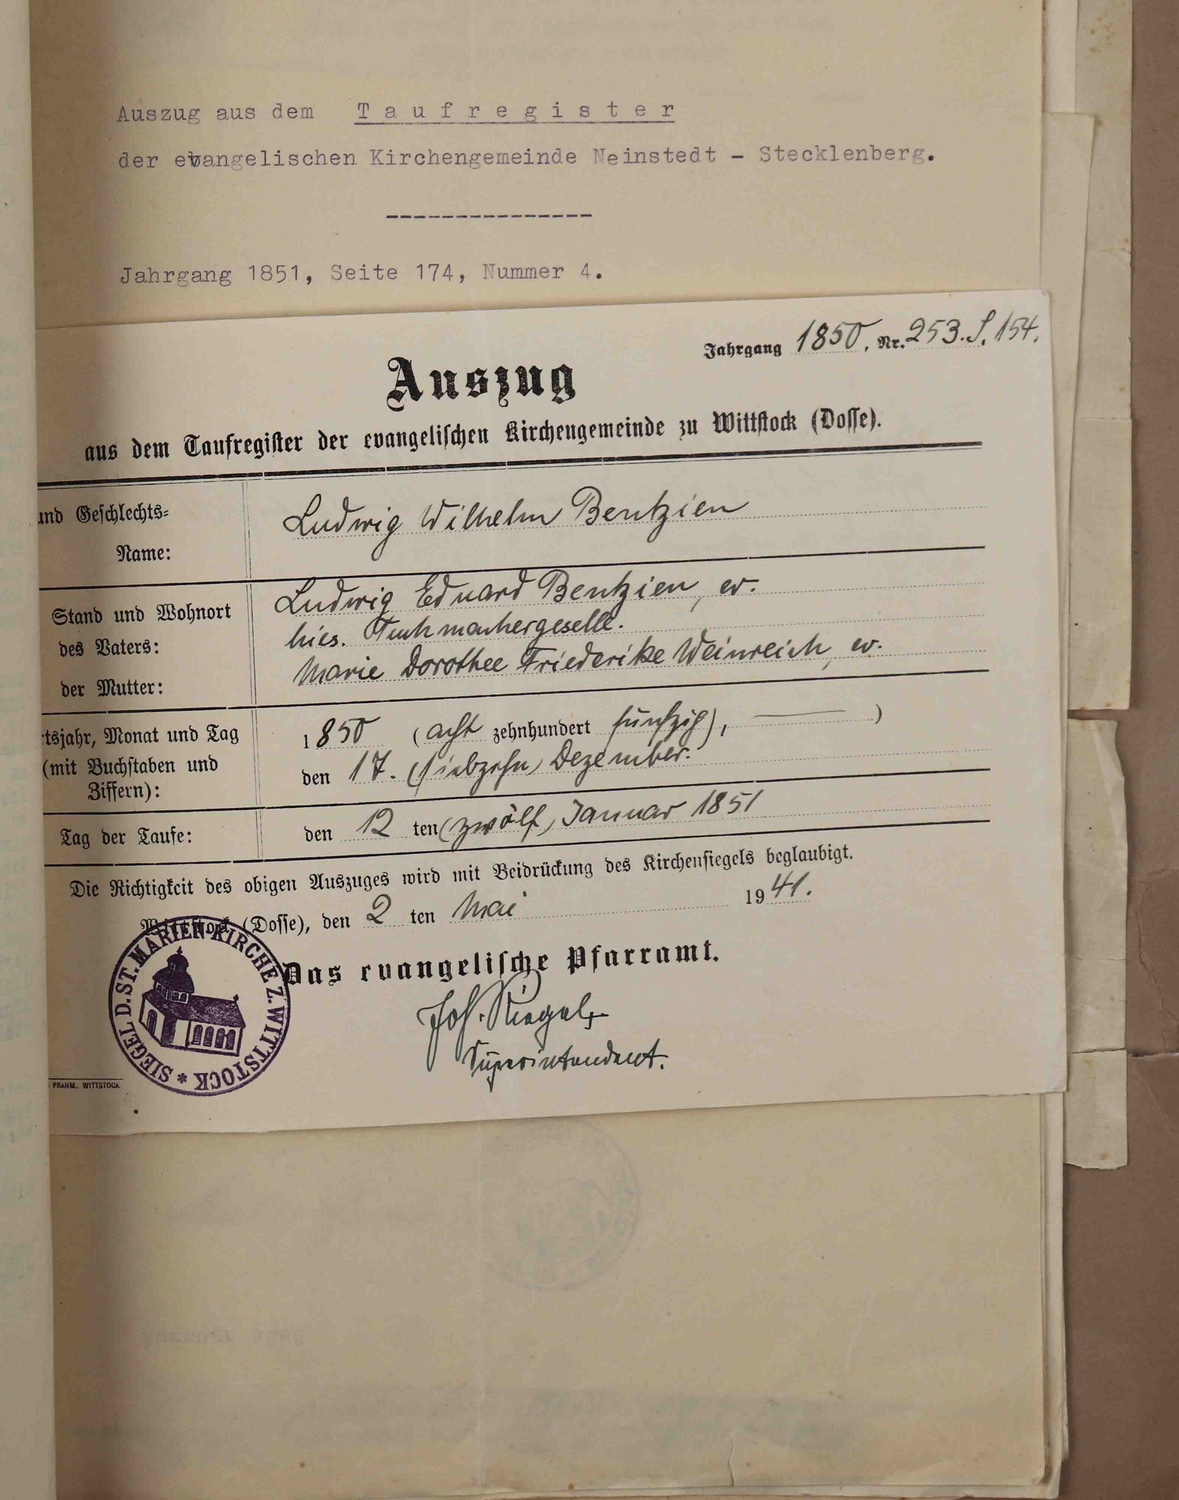 Auszug aus dem Taufregister
der evangelischen Kirchengemeinde Neinstedt - Stecklenberg.
---------------
Jahrgang 1851, Seite 174, Nummer 4.
Jahrgang 1850, Nr. 253. S. 154.
Auszug
aus dem Taufregister der evangelischen Kirchengemeinde zu Wittstock (Dosse).
und Geschlechts-
Name:
Ludwig Wilhelm Bentzien
Stand und Wohnort
des Vaters:
der Mutter:
Ludwig Eduard Bentzien, ev.
hies. Tuchmachergeselle.
Marie Dorothee Friederike Weinreich, ev.
tsjahr, Monat und Tag
(mit Buchstaben und
Ziffern):
1850 (acht zehnhundert fünfzig), )
den 17. (siebzehn) Dezember.
Tag der Taufe:
den 12 ten (zwölf) Januar 1851
Die Richtigkeit des obigen Auszuges wird mit Beidrückung des Kirchensiegels beglaubigt.
Wittstock (Dosse), den 2 ten Mai 1941.
Das evangelische Pfarramt.
Joh. Riegel,
Superintendent.
SIEGEL D. ST. MARIEN-KIRCHE Z. WITTSTOCK *
PRAHM, WITTSTOCK